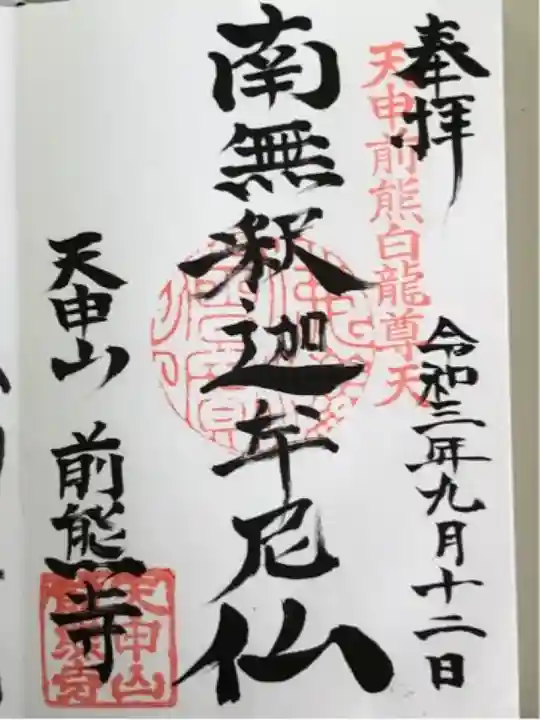 奉拝
令和三年九月十二日
天申前熊白龍尊天
南無釈迦牟尼仏
天申山 前熊寺
天申山
前熊寺